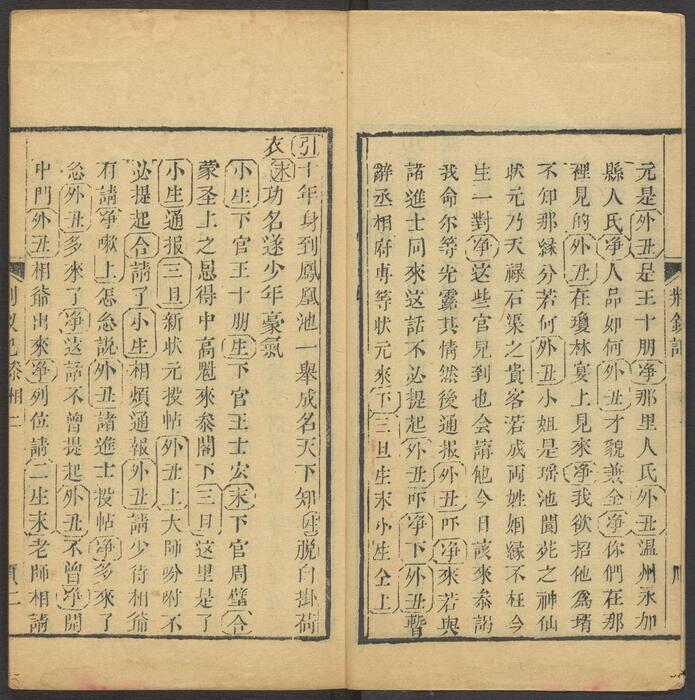 元是外丑是王十朋净那里人氏外丑温州永加
縣人氏净人品如何外丑才貌兼全净你們在那
裡見的外丑在瓊林宴上見來净我欲招他爲壻
不知那緣分若何外丑小姐是瑶池閬苑之神仙
状元乃天禄石渠之貴客若成両姓姻縁不枉今
生一對净這些官兒到也会講他今日該來叅謁
我命尔等先露其情然後通报外丑吓净來若與
諸進士同來这話不必提起外丑吓净下外丑暫
辭丞相府専等状元來下三旦生末小生仝上
引十年身到鳳凰池一舉成名天下知生脱白掛荷
衣末功名遂少年豪氣
小生下官王十朋生下官王士宏末下官周璧合
蒙圣上之恩得中高魁來叅閣下三旦这里是了
小生通报三旦新状元投帖外丑上大師吩咐不
必提起合請了小生相煩通報外丑請少待相爺
有請净嗽上怎怎説外丑諸進士投帖净多來了
怎外丑多來了净这話不曾提起外丑不曾净開
中門外丑相爺出來净列位請二生末老師相請
荆釵記
叅相二